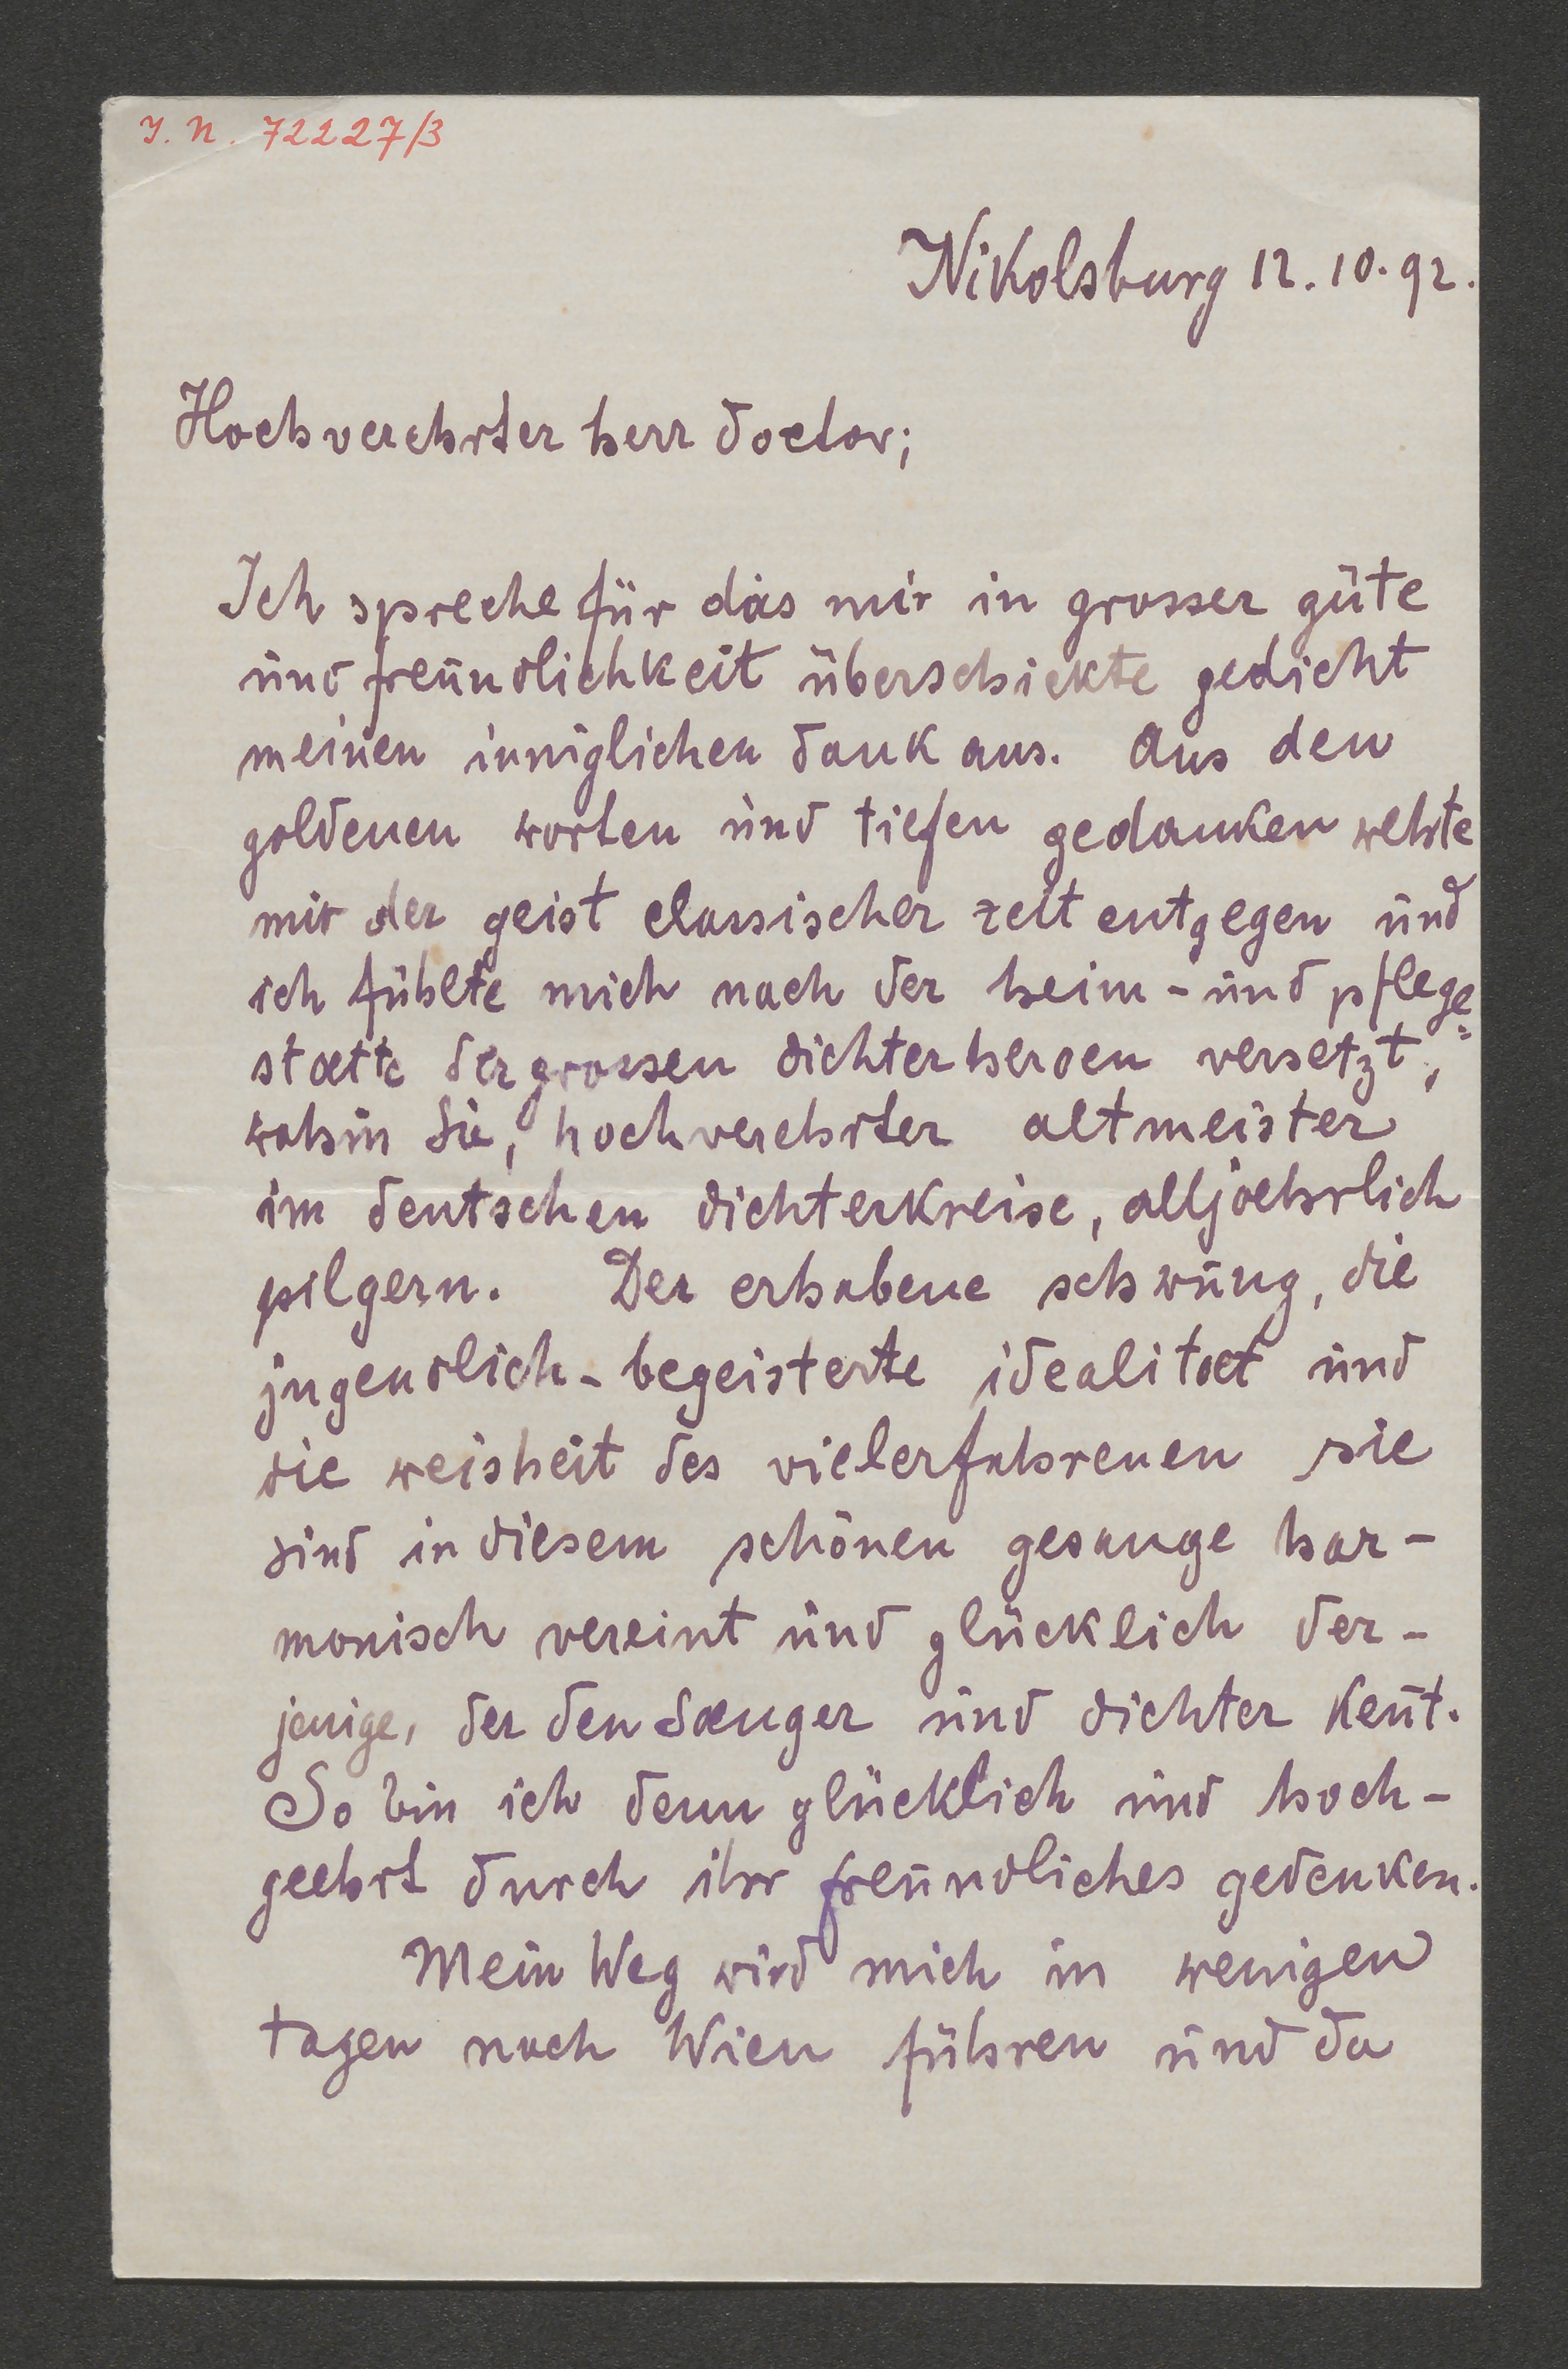 I. N. 72227/3
Nikolsburg 12. 10. 92.
Hochverehrter herr doctor;
Ich spreche für das mir in grosser güte
und freundlichkeit überschickte gedicht
meinen inniglichen dank aus. Aus den
goldenen worten und tiefen gedanken wehte
mir der geist classischer zeit entgegen und
ich fühlte mich nach der heim- und pflege=
stætte der grossen dichterheroen versetzt,
wohin Sie, hochverehrter altmeister
im deutschen dichterkreise, alljæhrlich
pilgern. Der erhabene schwung, die
jugendlich-begeisterte idealitæt und
die weisheit des vielerfahrenen sie
sind in diesem schönen gesange har-
monisch vereint und glücklich der-
jenige, der den Sænger und dichter kent̄.
So bin ich denn glücklich und hoch-
geehrt durch ihr freundliches gedenken.
Mein Weg wird mich in wenigen
tagen nach Wien führen und da